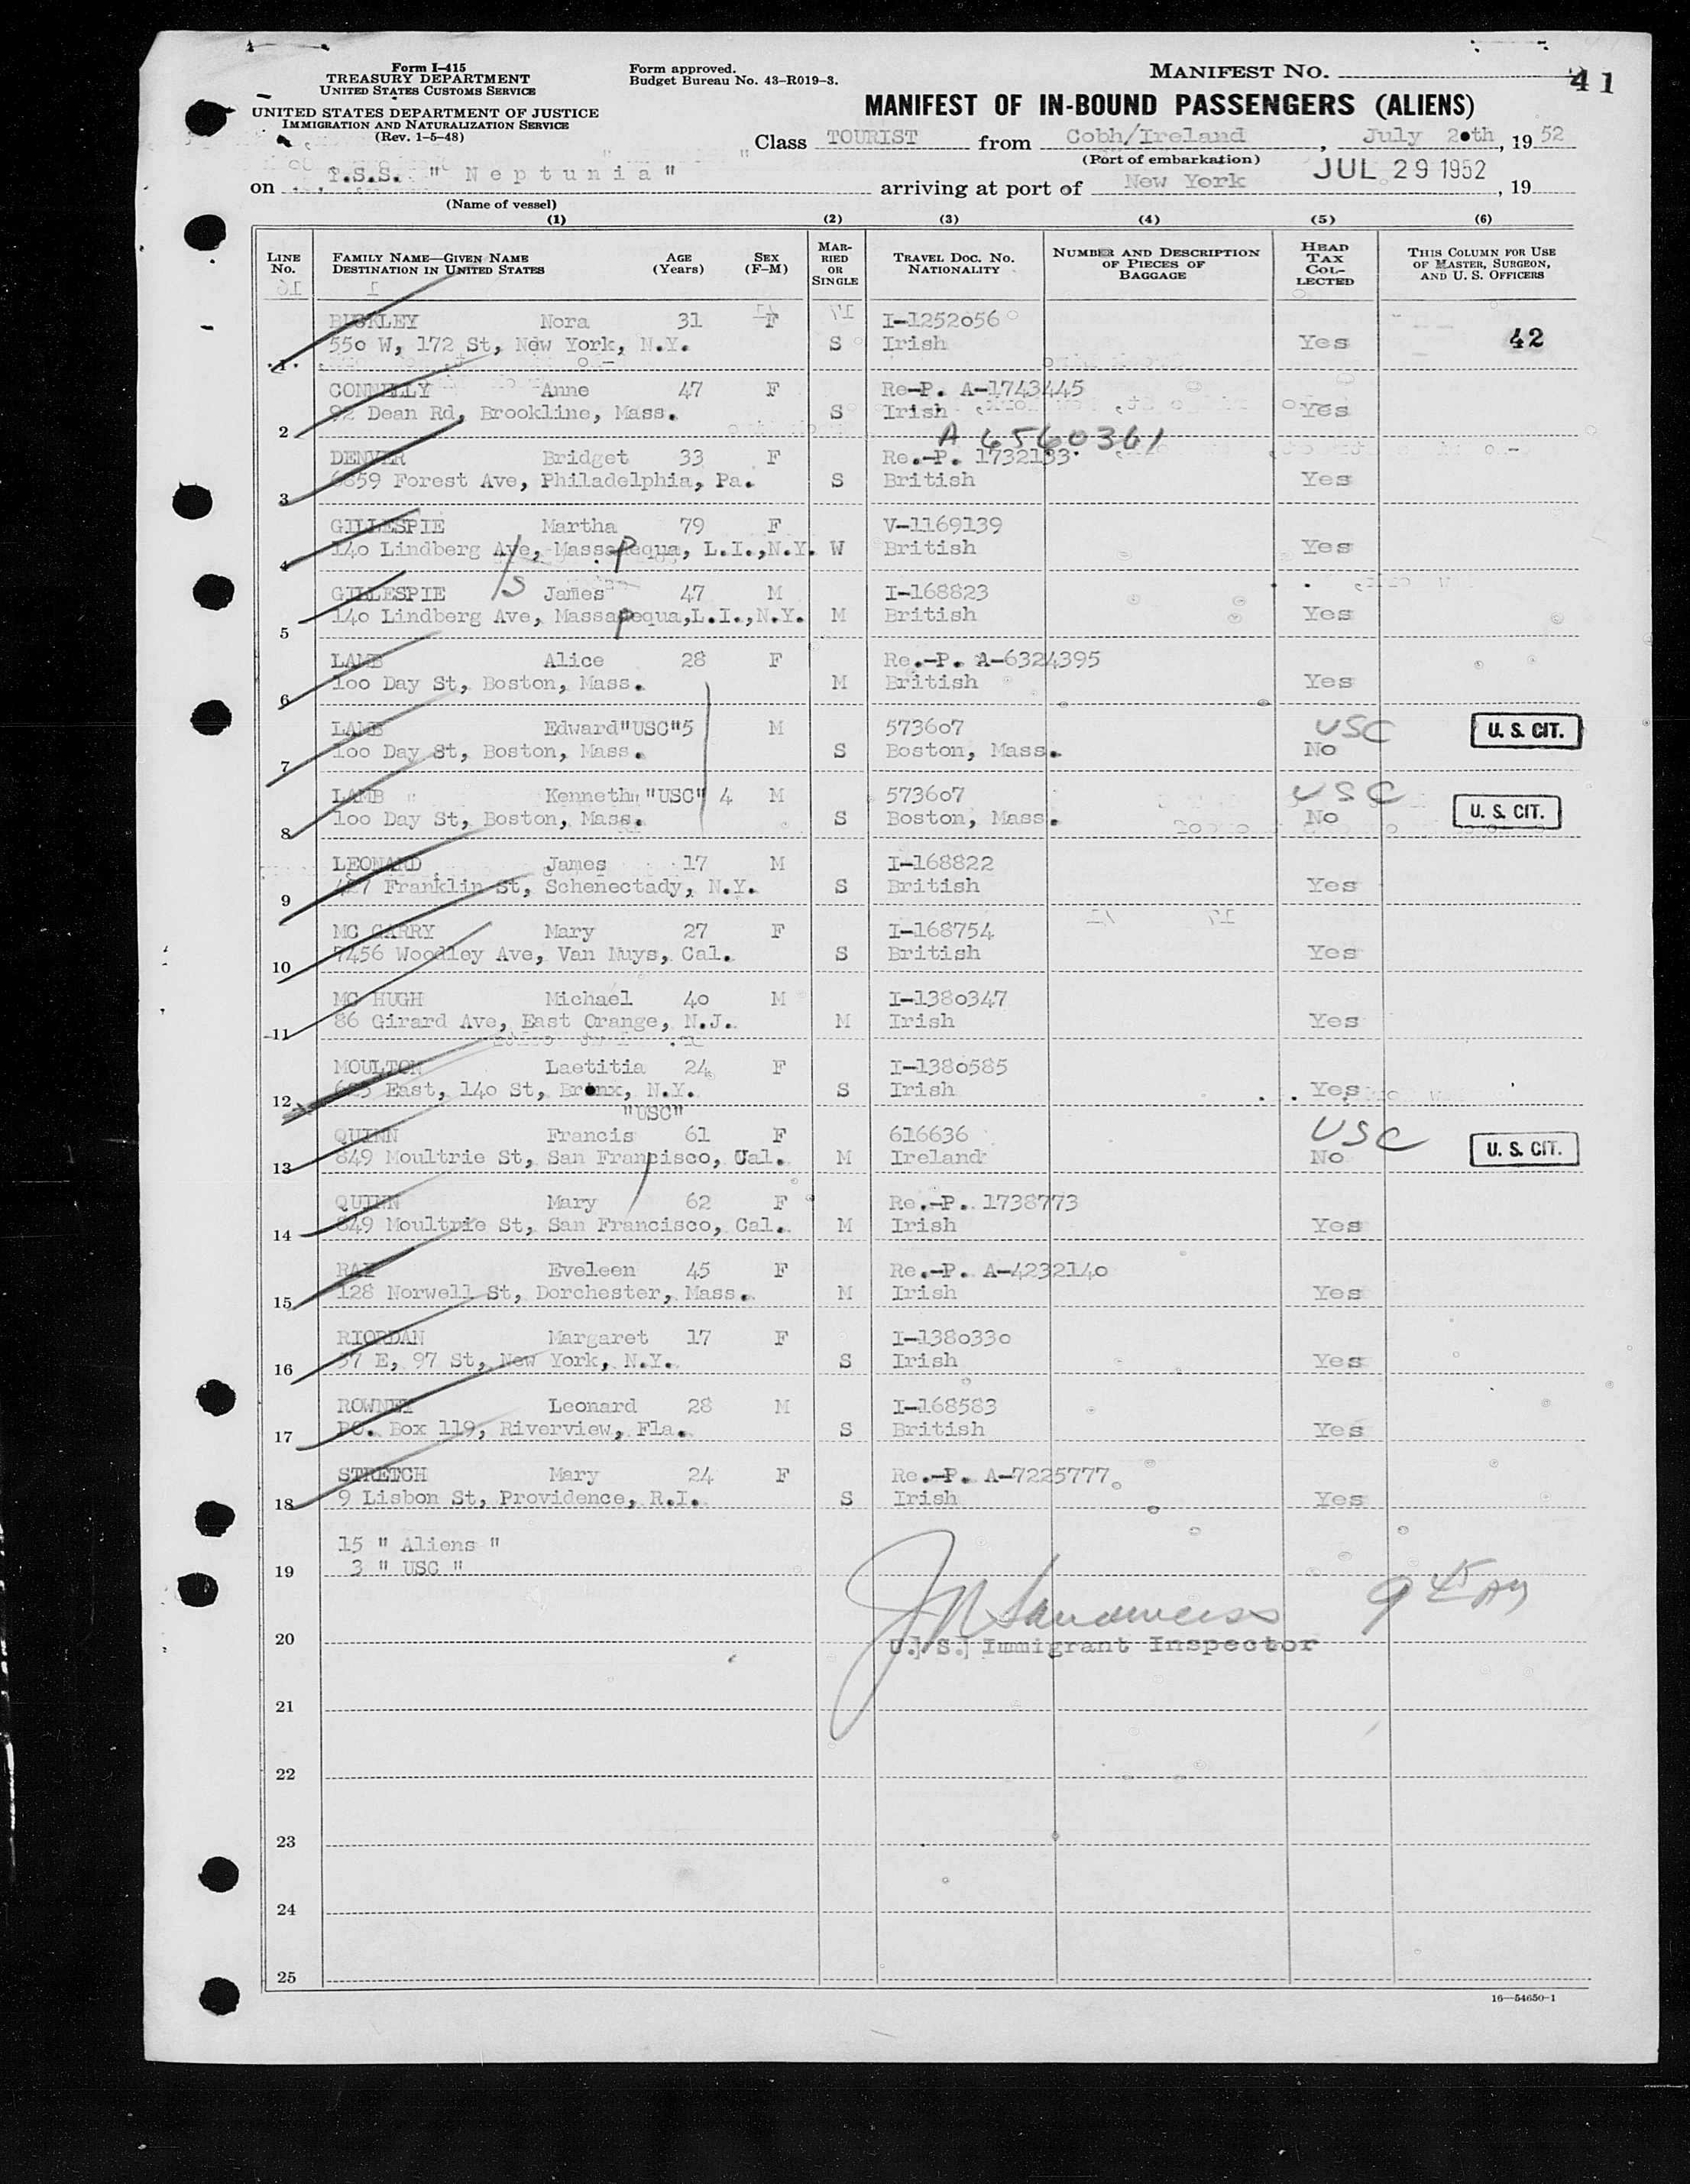 Form I-415
TREASURY DEPARTMENT
UNITED STATES CUSTOMS SERVICE
UNITED STATES DEPARTMENT OF JUSTICE
IMMIGRATION AND NATURALIZATION SERVICE
(Rev. 1-5-48)
Form approved.
Budget Bureau No. 43-R019-3.
MANIFEST NO.
41
MANIFEST OF IN-BOUND PASSENGERS (ALIENS)
Class TOURIST from Cobh/Ireland, July 20th, 1952
(Port of embarkation)
on T.S.S. " Neptunia " arriving at port of New York JUL 29 1952, 19
(Name of vessel)
(1) (2) (3) (4) (5) (6)
LINE No. FAMILY NAME—GIVEN NAME DESTINATION IN UNITED STATES AGE (Years) SEX (F-M) MARRIED OR SINGLE TRAVEL DOC. NO. NATIONALITY NUMBER AND DESCRIPTION OF PIECES OF BAGGAGE HEAD TAX COLLECTED THIS COLUMN FOR USE OF MASTER, SURGEON, AND U. S. OFFICERS
BUCKLEY Nora 31 F I-1252056
1 550 W, 172 St, New York, N.Y. S Irish Yes 42
CONNELLY Anne 47 F Re-P. A-1743445
2 92 Dean Rd, Brookline, Mass. S Irish Yes
A 6560361
DENVER Bridget 33 F Re.-P. 1732133
3 6859 Forest Ave, Philadelphia, Pa. S British Yes
GILLESPIE Martha 79 F V-1169139
4 140 Lindberg Ave, Massapequa, L.I.,N.Y. W British Yes
GILLESPIE James 47 M I-168823
5 140 Lindberg Ave, Massapequa,L.I.,N.Y. M British Yes
LAMB Alice 28 F Re.-P. A-6324395
6 100 Day St, Boston, Mass. M British Yes
LAMB Edward"USC"5 M 573607 USC U. S. CIT.
7 100 Day St, Boston, Mass. S Boston, Mass. No
LAMB Kenneth "USC" 4 M 573607 USC U. S. CIT.
8 100 Day St, Boston, Mass. S Boston, Mass. No
LEONARD James 17 M I-168822
9 427 Franklin St, Schenectady, N.Y. S British Yes
MC GARRY Mary 27 F I-168754
10 7456 Woodley Ave, Van Nuys, Cal. S British Yes
MC HUGH Michael 40 M I-1380347
11 86 Girard Ave, East Orange, N.J. M Irish Yes
MOULTON Laetitia 24 F I-1380585
12 East, 140 St, Bronx, N.Y. S Irish Yes
"USC"
QUINN Francis 61 F 616636 USC U. S. CIT.
13 849 Moultrie St, San Francisco, Cal. M Ireland No
QUINN Mary 62 F Re.-P. 1738773
14 849 Moultrie St, San Francisco, Cal. M Irish Yes
RAY Eveleen 45 F Re.-P. A-4232140
15 128 Norwell St, Dorchester, Mass. M Irish Yes
RIORDAN Margaret 17 F I-1380330
16 57 E, 97 St, New York, N.Y. S Irish Yes
ROWNEY Leonard 28 M I-168583
17 PO. Box 119, Riverview, Fla. S British Yes
STRETCH Mary 24 F Re.-P. A-7225777
18 9 Lisbon St, Providence, R.I. S Irish Yes
15 " Aliens "
19 3 " USC "
J Sandweiss 9 45 AM
20 U. S. Immigrant Inspector
21
22
23
24
25
16—54650-1